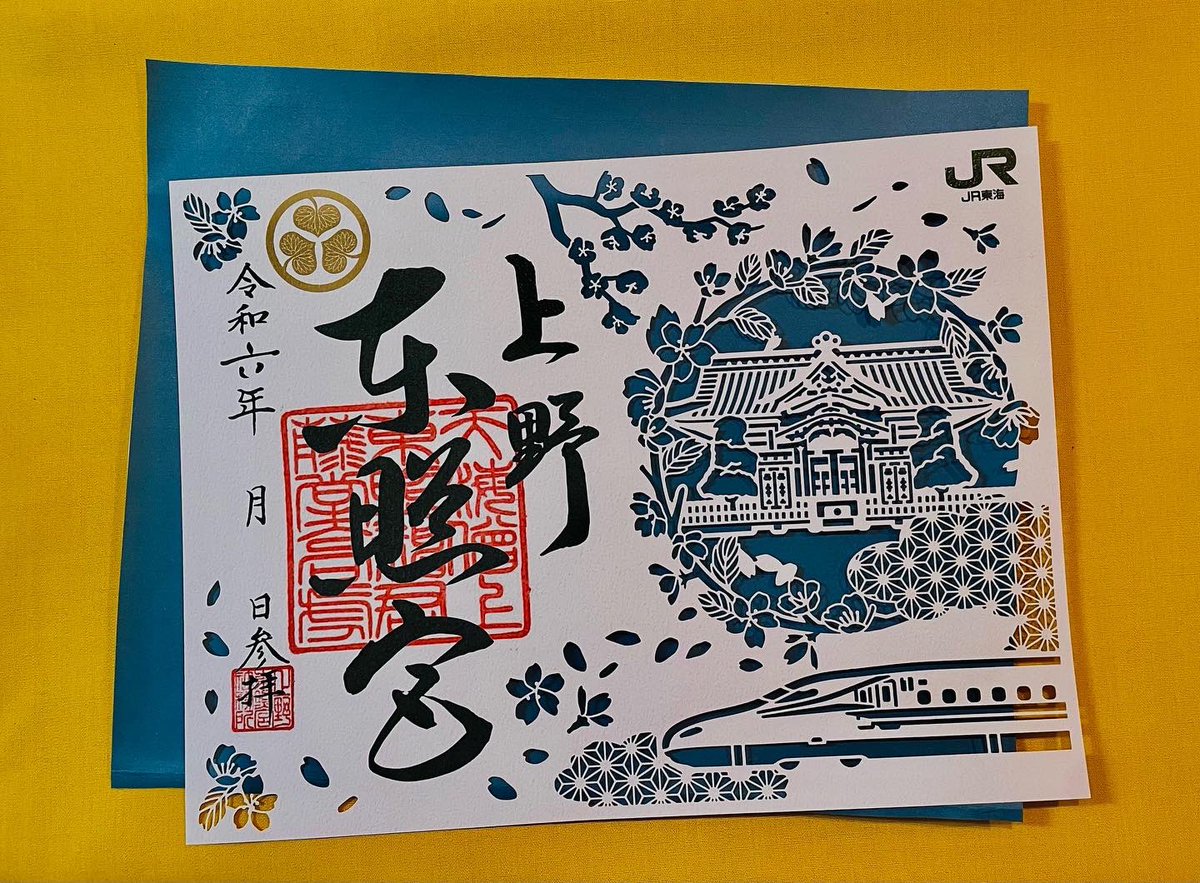 JR
JR東海
上野
東照宮
令和六年　月　日参拝